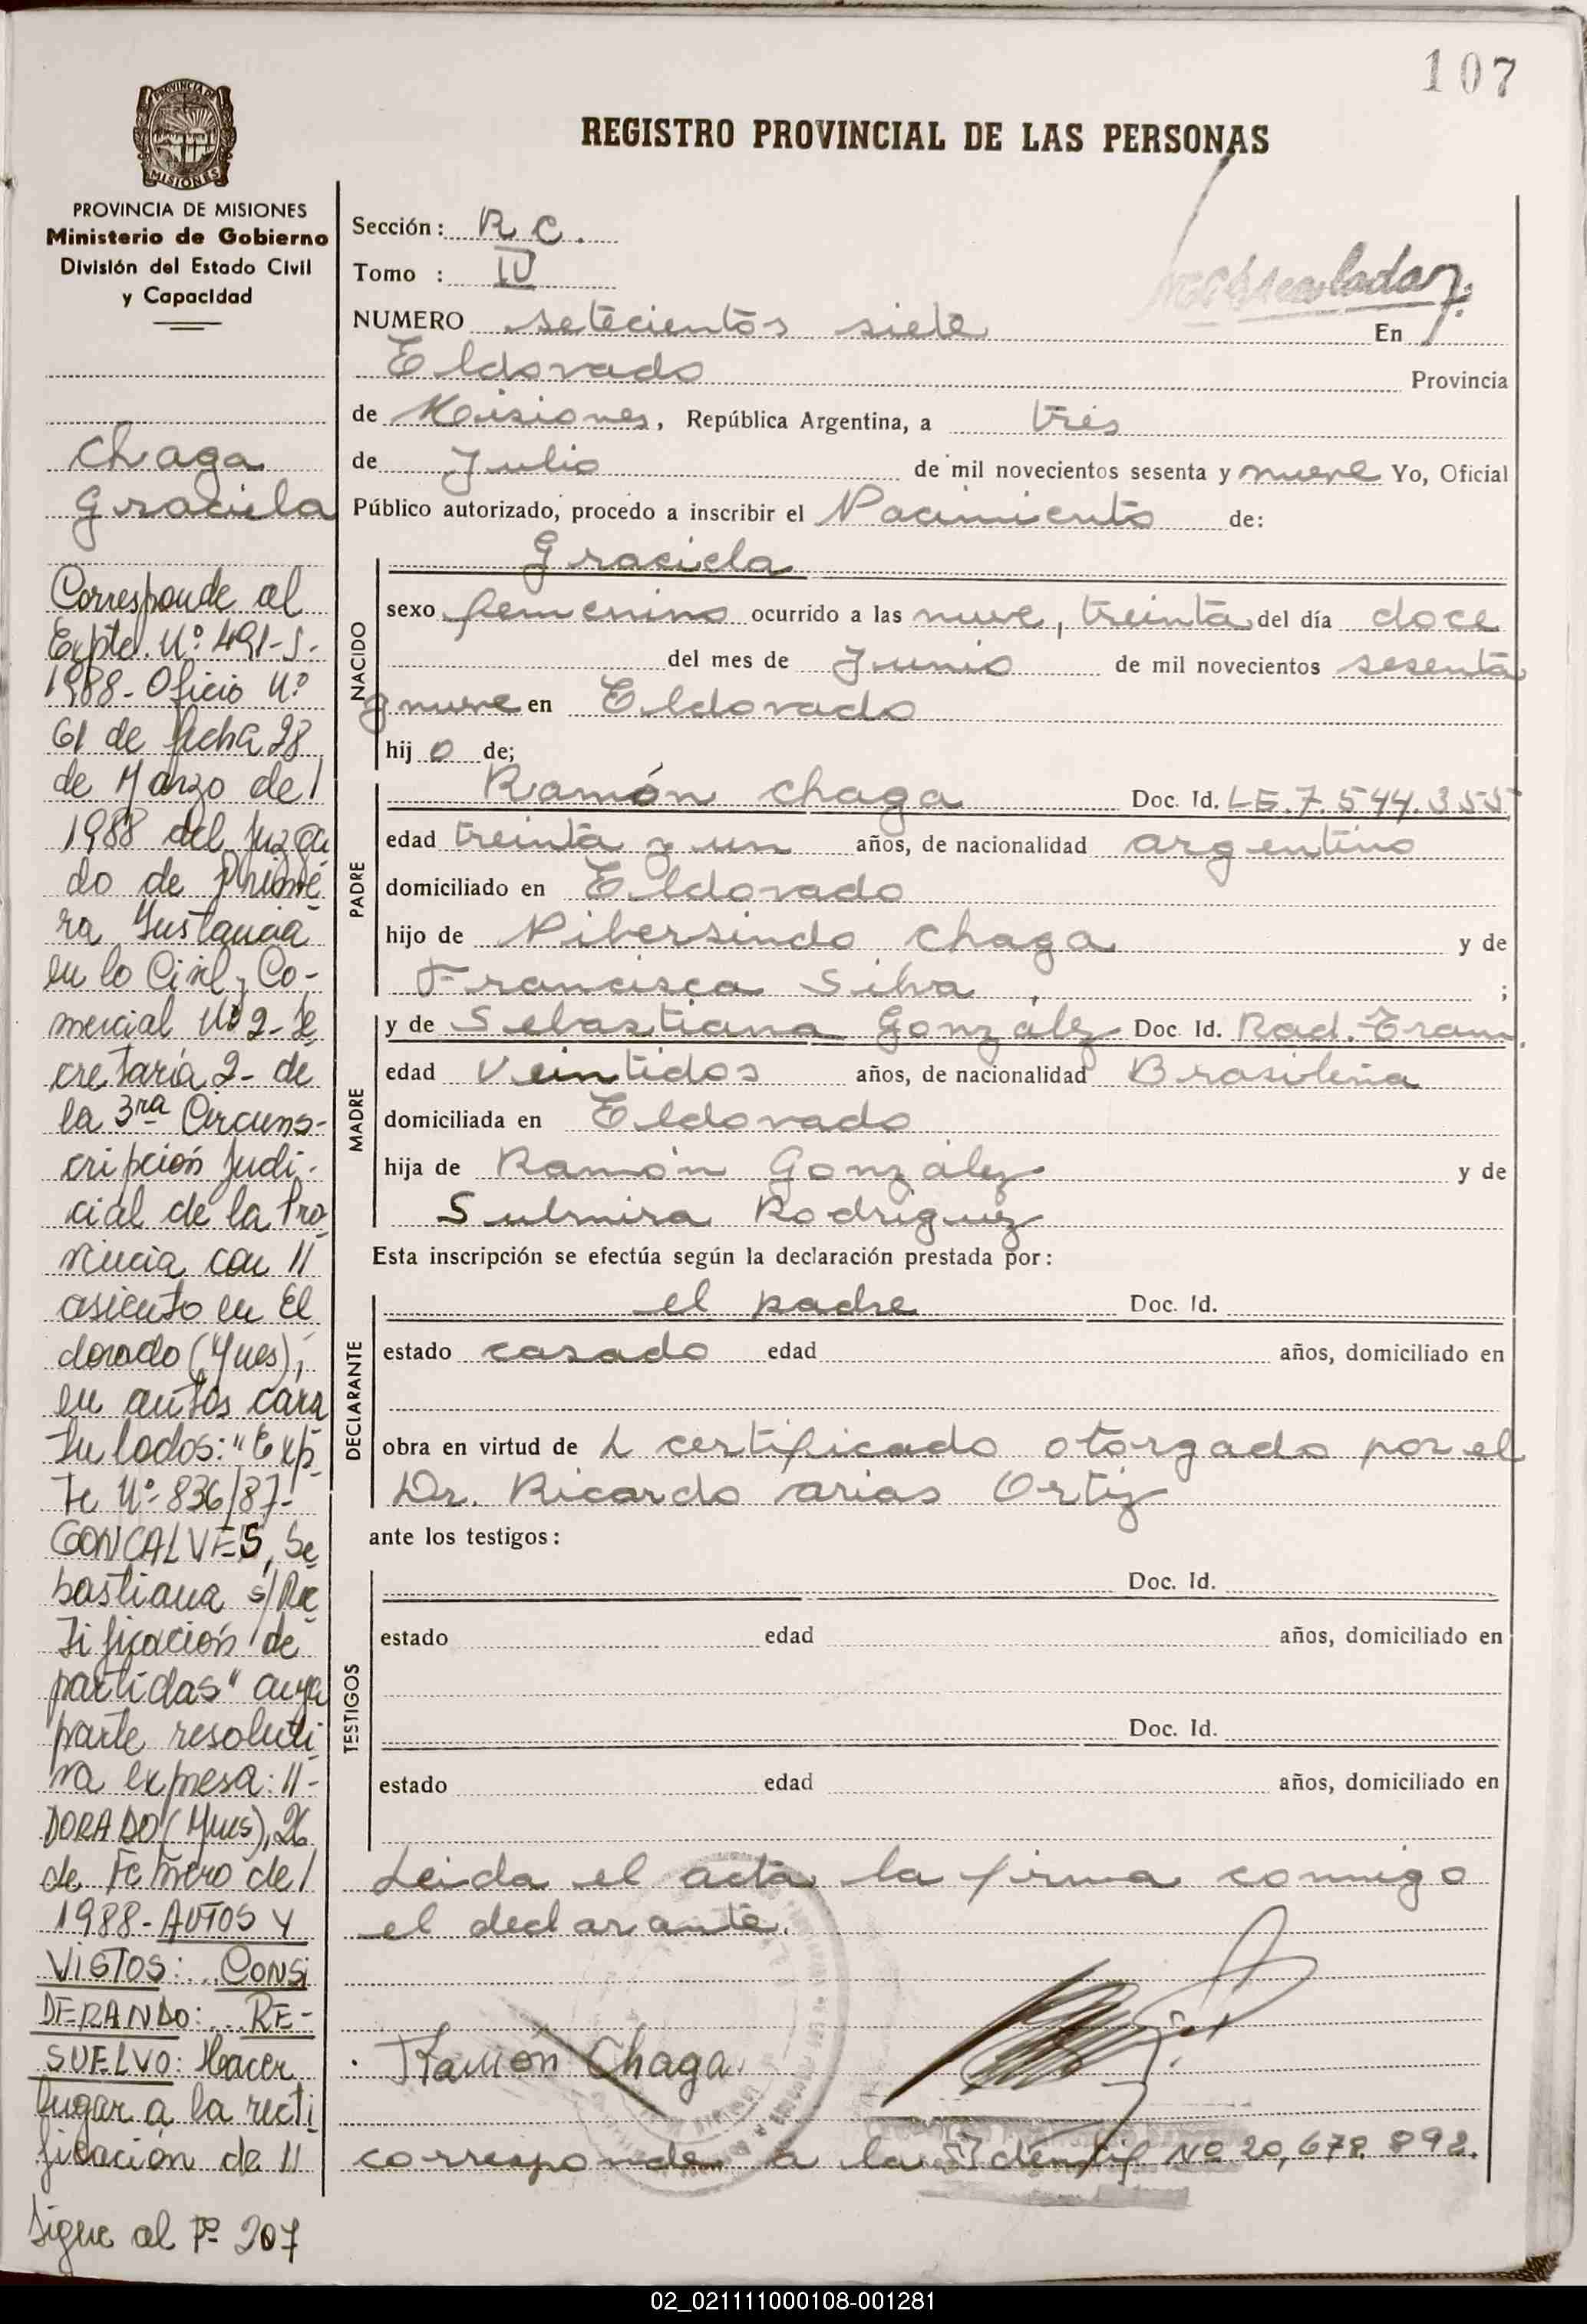 107
REGISTRO PROVINCIAL DE LAS PERSONAS
PROVINCIA DE
MISIONES
PROVINCIA DE MISIONES
Ministerio de Gobierno
División del Estado Civil
y Capacidad
Chaga
Graciela
Corresponde al
Expte. Nº 491-S-
1988- Oficio Nº
61 de fecha 28
de Marzo de/
1988 del Juzga
do de Prime
ra Instancia
en lo Civil y Co-
mercial Nº 2- Se
cretaría 2- de
la 3ra Circuns-
cripción Judi-
cial de la Pro
vincia con //
asiento en El
dorado (Mnes),
en autos cara
tulados: "Exp
te Nº 836/87-
GONCALVES, Se
bastiana s/ Rec
tificación de
partidas" cuya
parte resoluti
va expresa: //-
DORADO (Mnes), 26
de Febrero de/
1988- AUTOS Y
VISTOS:.. CONSI
DERANDO:... RE-
SUELVO: Hacer
lugar a la recti
ficación de //
Sigue al Fº 207
Sección: R C.
Tomo : IV
NUMERO setecientos siete En
Eldorado Provincia
de Misiones, República Argentina, a tres
de Julio de mil novecientos sesenta y nueve Yo, Oficial
Público autorizado, procedo a inscribir el Nacimiento de:
NACIDO
Graciela
sexo femenino ocurrido a las nueve, treinta del día doce
del mes de Junio de mil novecientos sesenta
y nueve en Eldorado
hij o de;
PADRE
Ramón Chaga Doc. Id. LE.7.544.355
edad treinta y un años, de nacionalidad argentino
domiciliado en Eldorado
hijo de Nibersindo Chaga y de
Francisca Silva ;
MADRE
y de Sebastiana González Doc. Id. Rad. Tram.
edad veintidos años, de nacionalidad Brasileña
domiciliada en Eldorado
hija de Ramón González y de
Sulmira Rodríguez
Esta inscripción se efectúa según la declaración prestada por:
DECLARANTE
el padre Doc. Id.
estado casado edad años, domiciliado en
obra en virtud de L certificado otorgado por el
Dr. Ricardo arias Ortiz
ante los testigos:
TESTIGOS
Doc. Id.
estado edad años, domiciliado en
Doc. Id.
estado edad años, domiciliado en
Leida el acta la firma conmigo
el declarante.
Ramón Chaga
corresponde a la Identif Nº 20,678.892.
02_021111000108-001281